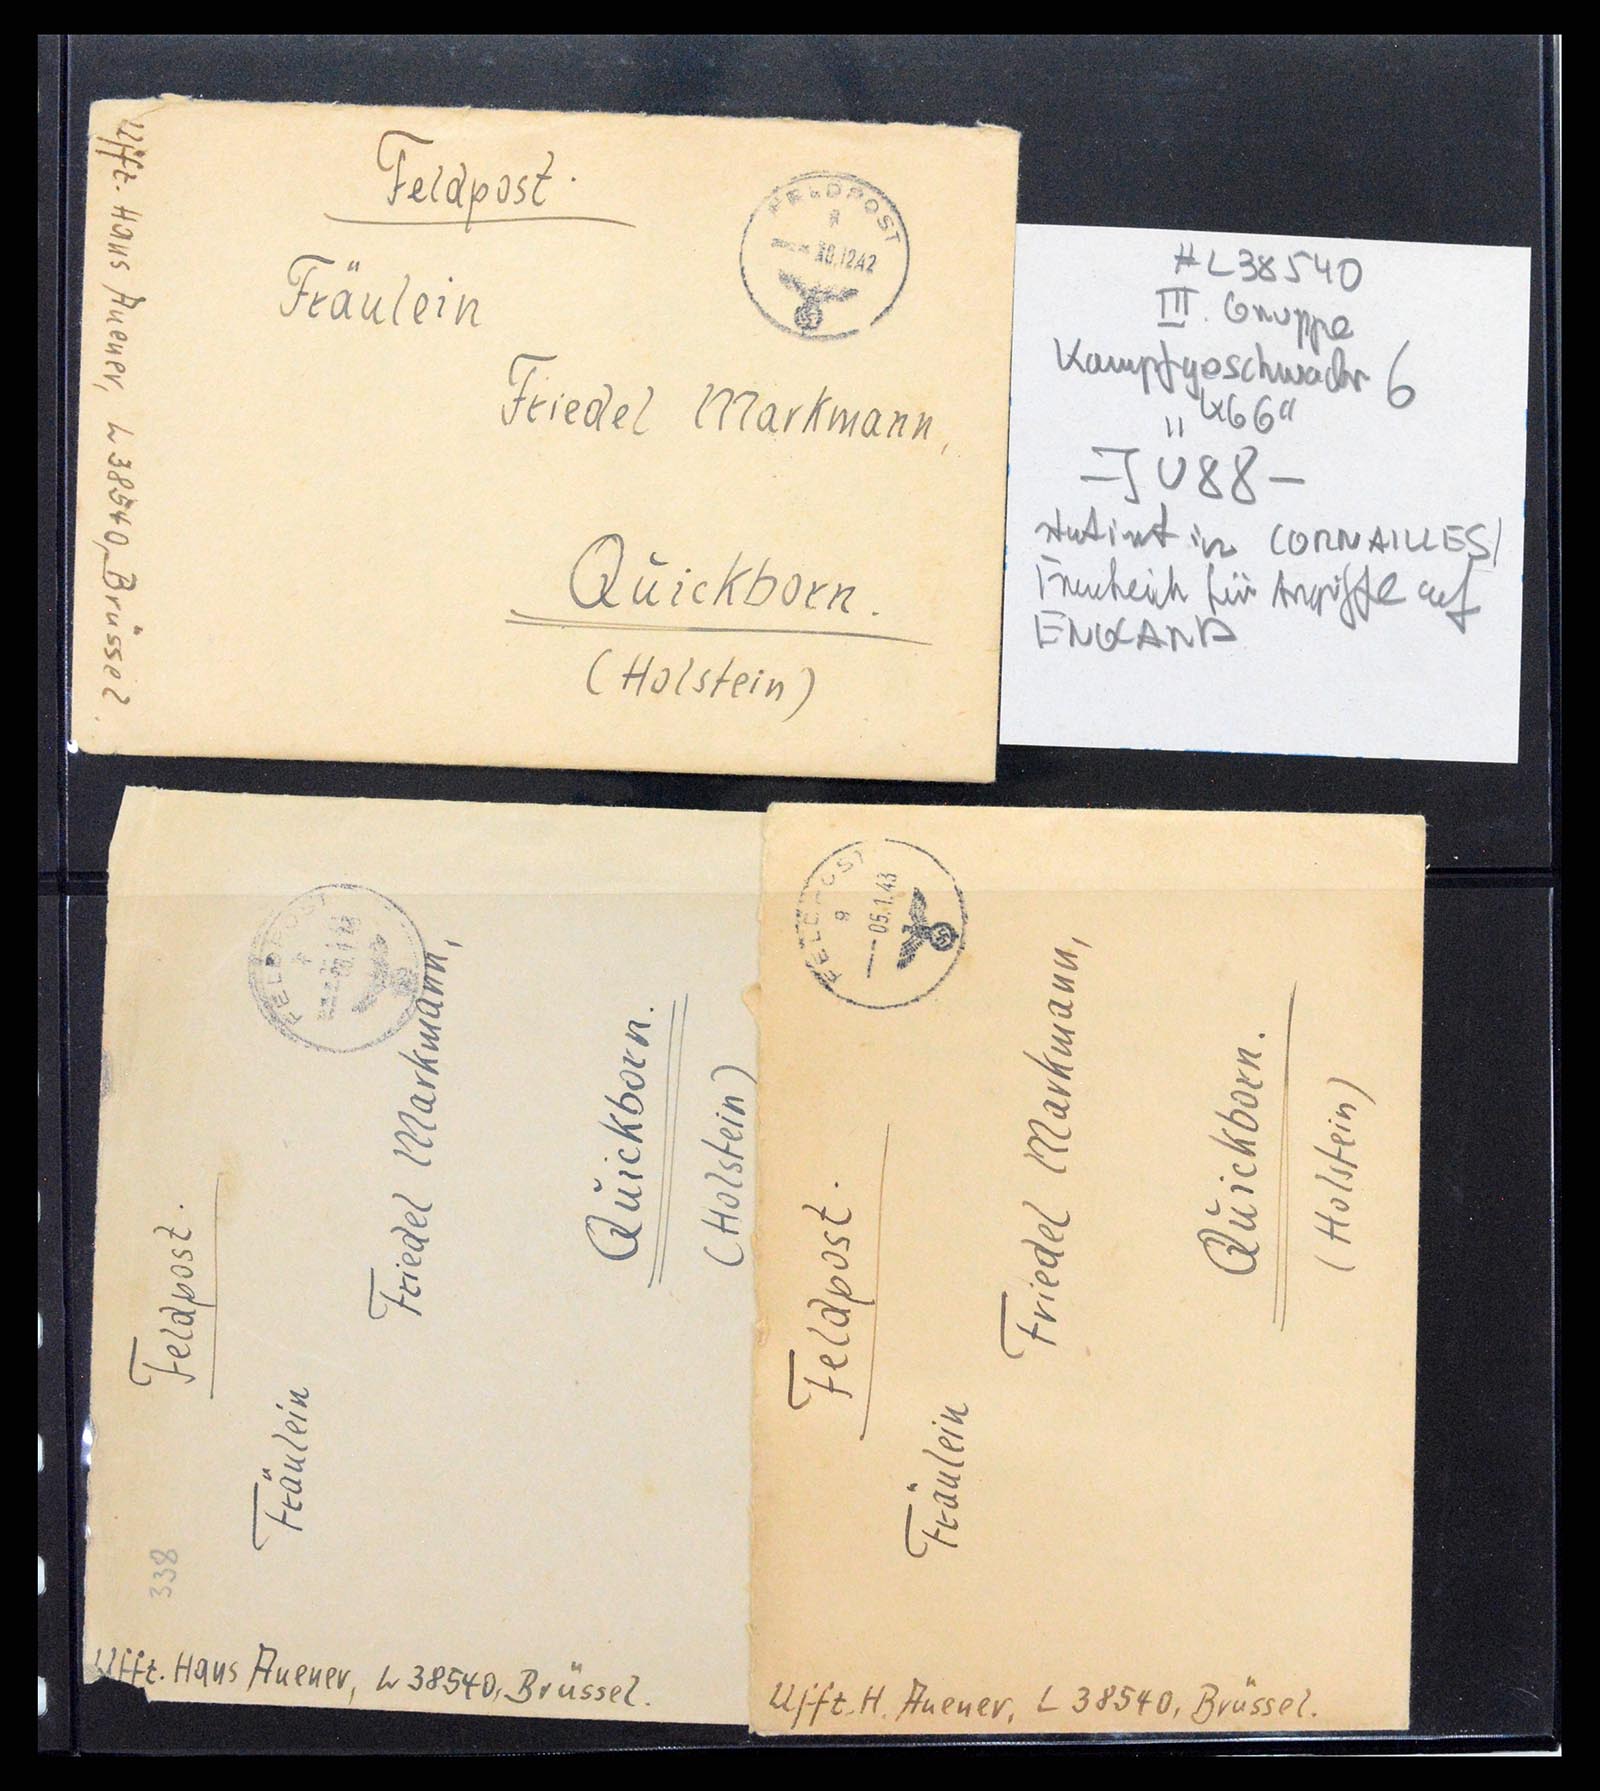 Feldpost.
FELDPOST
a
30.12.42
Fräulein
Friedel Markmann,
Quickborn.
(Holstein)
Uffz. Hans Auener, L 38540, Brüssel.
#L38540
III. Gruppe
Kampfgeschwader 6
"KG6"
-JÜ88-
in CORNAILLES/
Frankreich für Angriffe auf
ENGLAND
FELDPOST
Feldpost.
Fräulein
Friedel Markmann,
Quickborn.
(Holstein)
338
Uffz. Hans Auener, L 38540, Brüssel.
FELDPOST
a
05.1.43
Feldpost.
Fräulein
Friedel Markmann,
Quickborn.
(Holstein)
Uffz. H. Auener, L 38540, Brüssel.